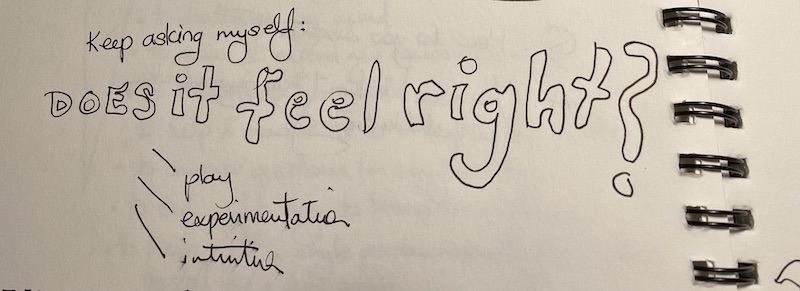 Keep asking myself:
DOES it feel right?
\ play
\ experimentation
\ intuitive